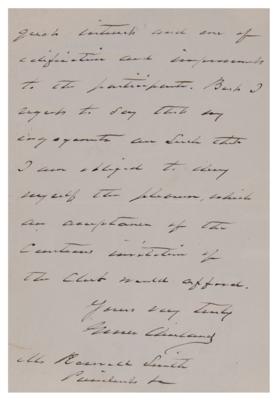 great interest and one of
edification and improvement
to the participants. But I
regret to say that my
engagements are such that
I am obliged to deny
myself the pleasure, which
an acceptance of the
Courteous invitation of
the Club would afford.
Yours very truly
Grover Cleveland
Mr Roswell Smith
President &c